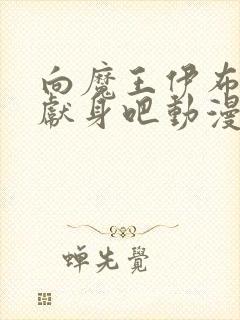 向魔王伊布
獻身吧動漫
蝉先覺